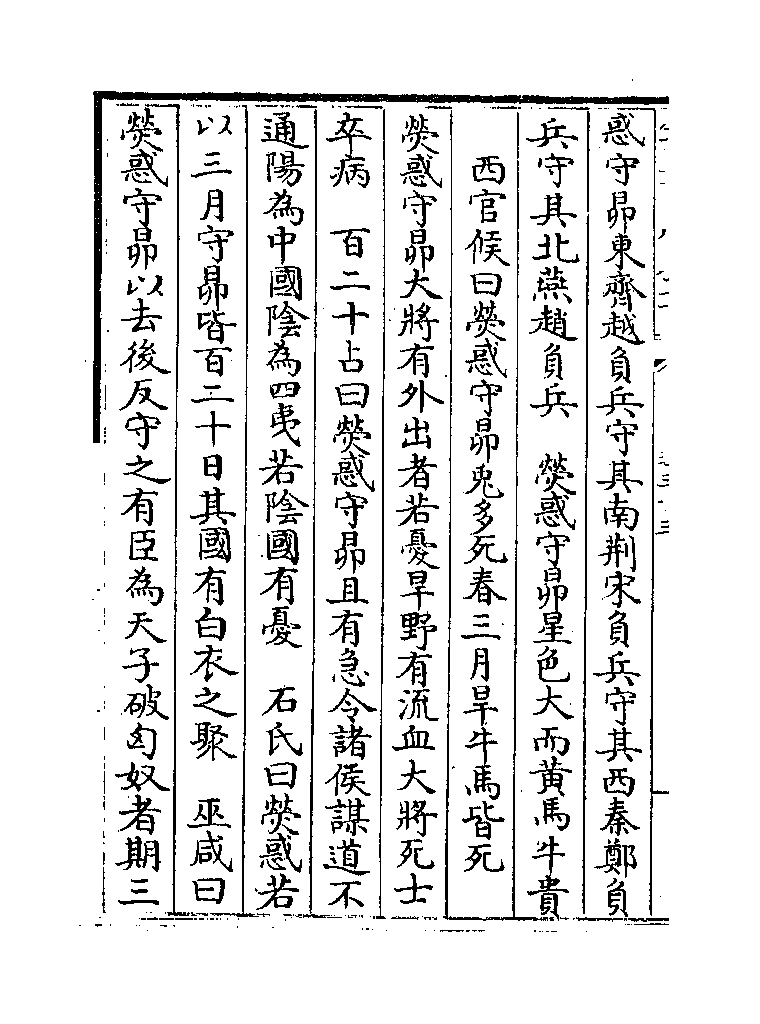 惑守昴東齊越負兵守其南荆宋負兵守其西秦鄭負
兵守其北燕趙負兵　熒惑守昴星色大而黄馬牛貴
西官候曰熒惑守昴兎多死春三月旱牛馬皆死
熒惑守昴大將有外出者若憂旱野有流血大將死士
卒病　百二十占曰熒惑守昴且有急令諸侯謀道不
通陽為中國陰為四夷若陰國有憂　石氏曰熒惑若
以三月守昴皆百二十日其國有白衣之聚　巫咸曰
熒惑守昴以去後反守之有臣為天子破匈奴者期三